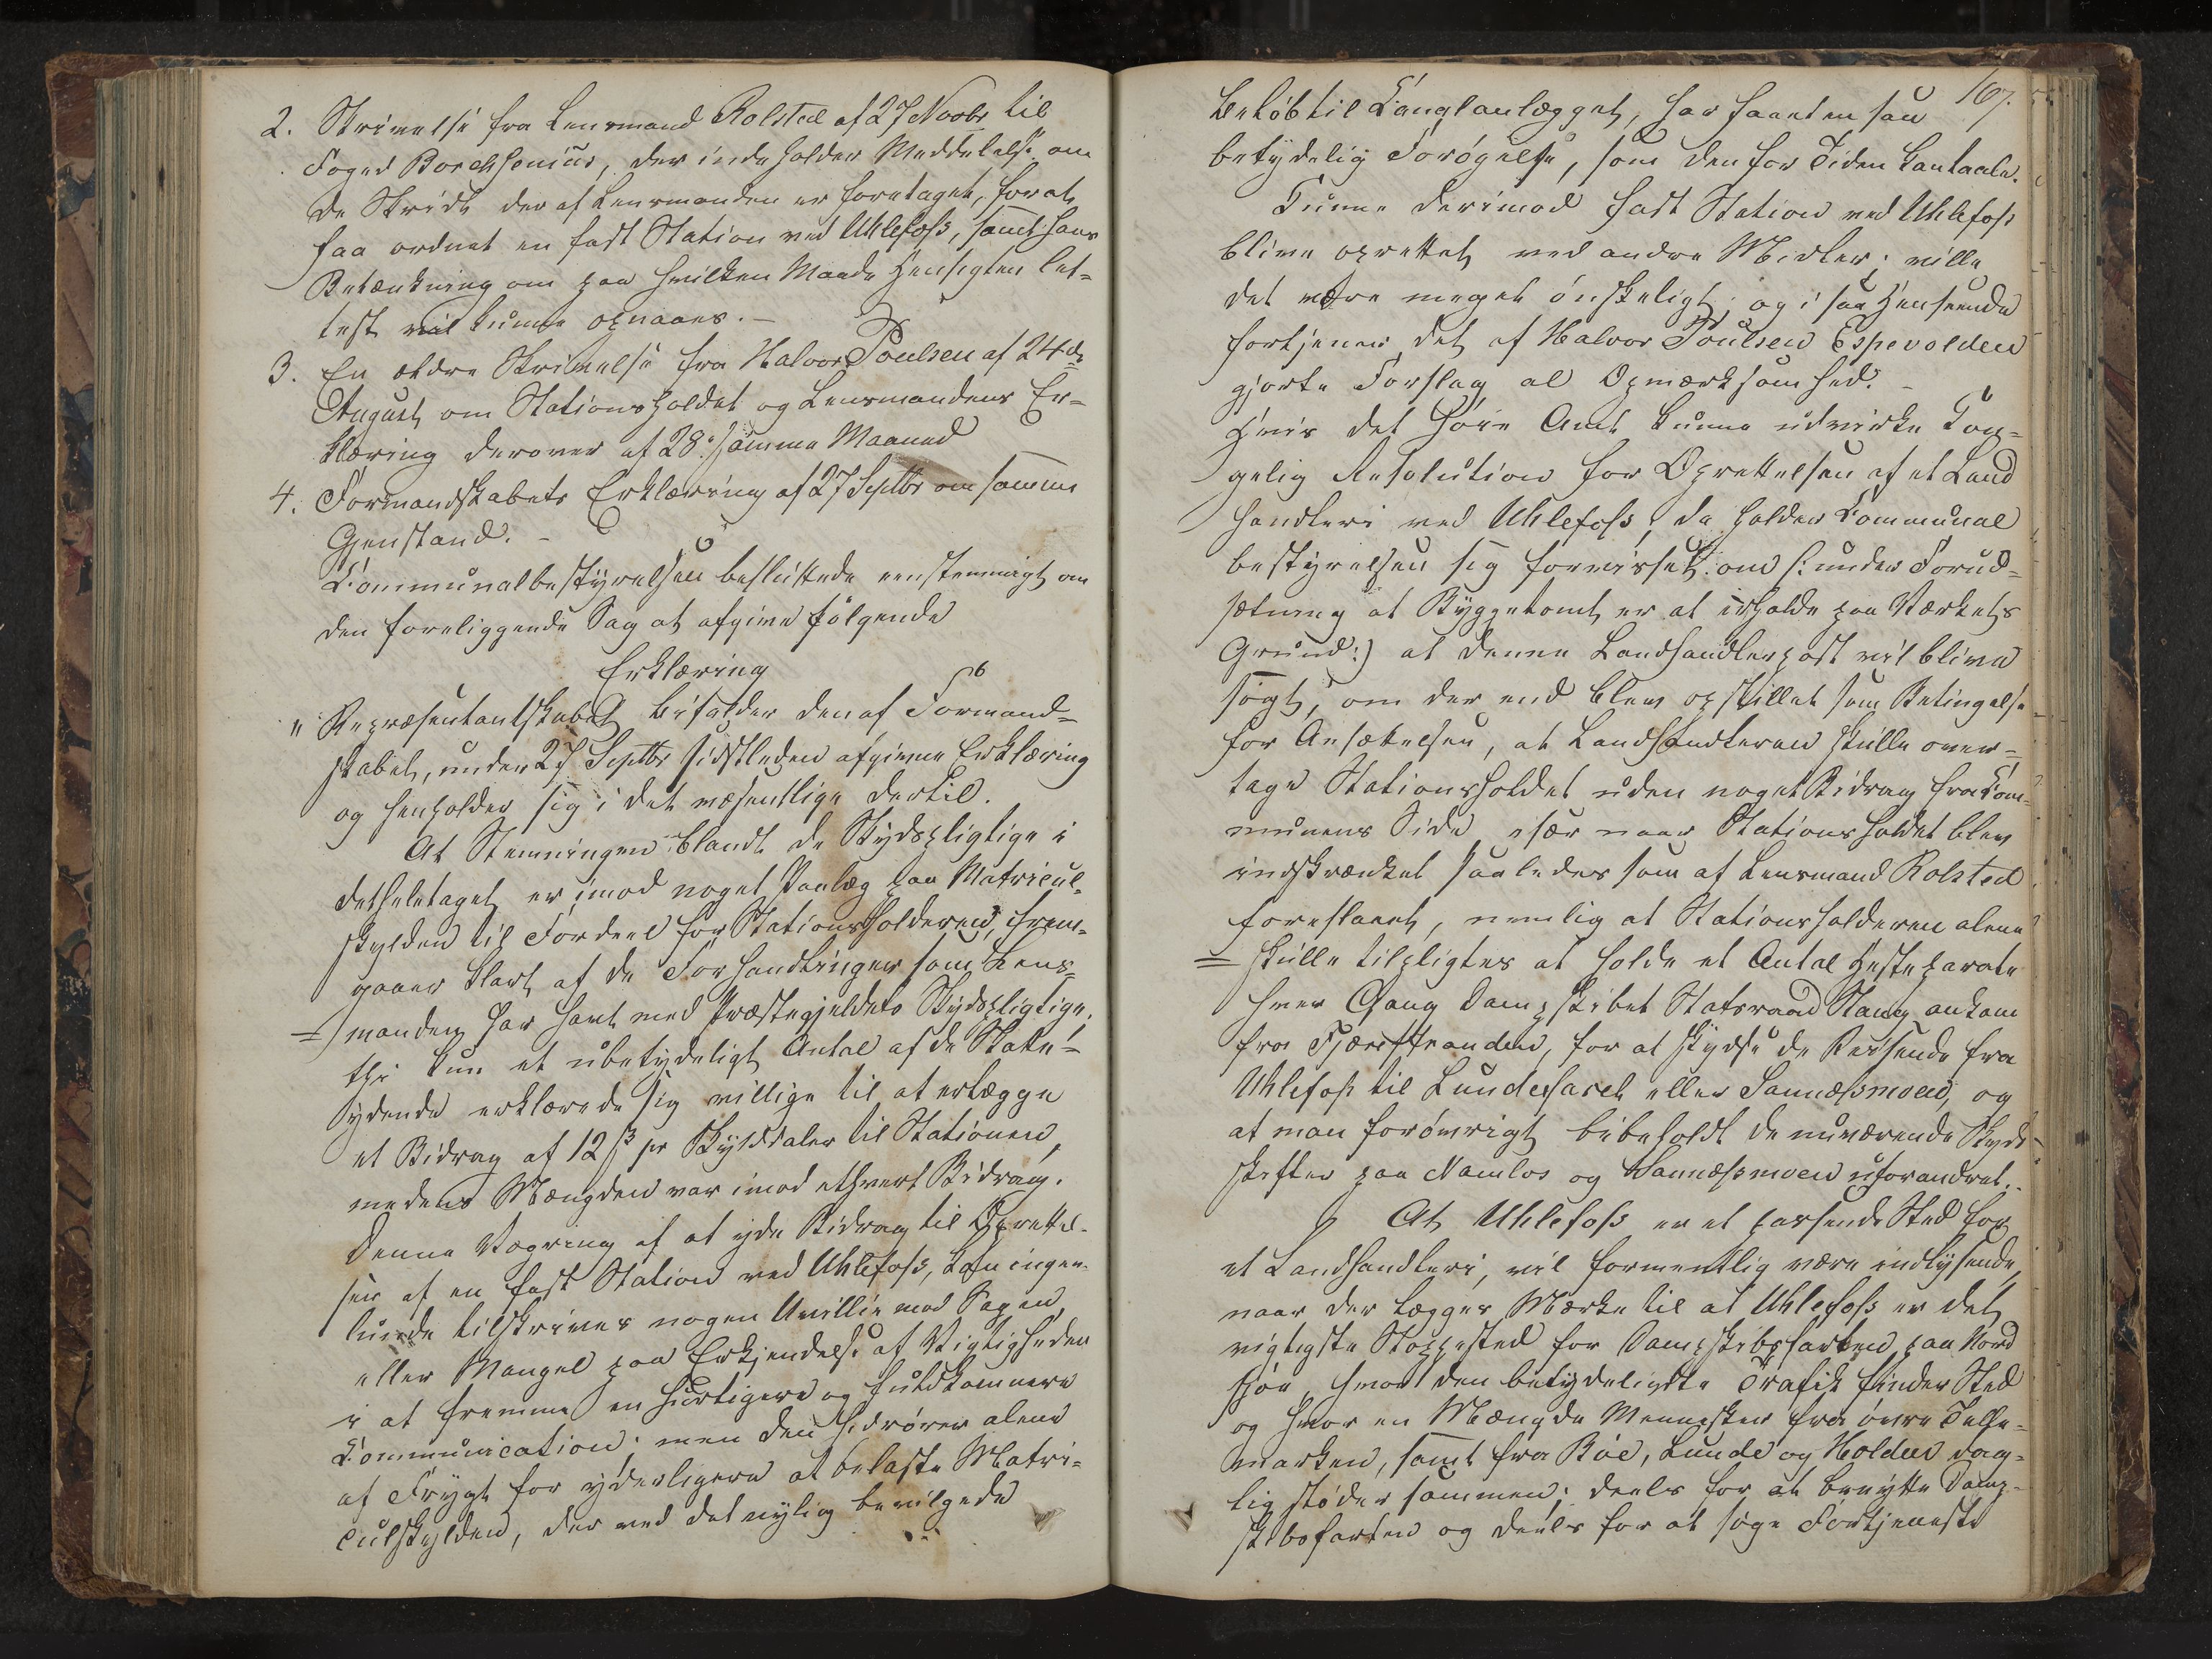 2. Skrivelse fra Lensmand Rolsted af 27 Novbr til
Foged Borchsenius, der indeholder Meddelelse om
de Skridt der af Lensmanden er foretaget, for at
faa ordnet en fast Station ved Uhlefoss, samt hans
Betænkning om paa hvilken Maade Hensigten let-
test vil kunne opnaaes.-
3. En ældre Skrivelse fra Halvor Poulsen af 24de
August om Stationsholdet og Lensmandens Er-
klæring derover af 28. samme Maaned
4. Formandskabets Erklæring af 27 Septbr om samme
Gjenstand. -
Communalbestyrelsen besluttede eenstemmigt om
den foreliggende Sag at afgive følgende
Erklæring
" Repræsentantskabet bifalder den af Formand-
skabet, under 27 Septbr sidstleden afgivne Erklæring
og henholder sig i det væsentlige dertil.
At Stemningen blandt de Skydspligtige i
detheletaget er imod noget Paalæg paa Matricul-
skylden til Fordeel for Stationsholderen, frem-
gaaer klart af de Forhandlinger som Lens-
manden har havt med Præstegjeldets Skydspligtige,
thi kun et ubetydeligt Antal af de Skatte-
ydende erklærede sig villige til at erlægge
et Bidrag af 12 ß pr Skylddaler til Stationen,
medens Mængden var imod ethvert Bidrag.
Denne Vægring af at yde Bidrag til Oprettel-
sen af en fast Station ved Uhlefoss, kan ingen-
lunde tilskrives nogen Uvillie mod Sagen,
eller Mangel paa Erkjendelse af Vigtigheden
i at fremme en hurtigere og fuldkomnere
Communication; men den hidrører alene
af Frygt for yderligere at belaste Matri-
culskylden, der ved det nylig bevilgede
167.
Beløb til Canalanlægget, har faaet en saa
betydelig Forøgelse, som den for Tiden kan taale.
Kunne derimod fast Station ved Uhlefoss
blive oprettet ved andre Midler, ville
det være meget ønskeligt; og i saa Henseende
fortjener det af Halvor Poulsen Espevolden
gjorte Forslag al Opmærksomhed. -
Hvis det høie Amt kunne udvirke Kon-
gelig Resolution for Oprettelsen af et Land
handleri ved Uhlefoss, da holder Communal
bestyrelsen sig forvisset om (: under Forud-
sætning at Byggetomt er at erholde paa Værkets
Grund:) at denne Landhandlerpost vil blive
søgt, om der end blev opstillet som Betingelse
for Ansættelsen, at Landhandleren skulle over-
tage Stationsholdet uden noget Bidrag fra Com-
munens Side, især naar Stationsholdet blev
indskrænket saaledes som af Lensmand Rolsted
foreslaaet, nemlig at Stationsholderen alene
skulle tilpligtes at holde et Antal Heste parate
hver Gang Dampskibet Statsraad Stang ankom
fra Fjærestranden, for at skydse de Reisende fra
Uhlefoss til Lundefaret eller Sannæssmoen, og
at man forøvrigt bibeholdt de nuværende Skyds-
skifter paa Namlos og Sannæssmoen uforandret.
At Uhlefoss er et passende Sted for
et Landhandleri, vil formentlig være indlysende,
naar der lægges Mærke til at Uhlefoss er det
vigtigste Stoppested for Dampskibsfarten paa Nord
sjøe, hvor den betydeligste Trafik finder Sted
og hvor en Mængde Mennesker fra øvre Telle-
marken, samt fra Bøe, Lunde og Holden dag-
lig støder sammen; deels for at benytte Damp-
skibsfarten og deels for at søge Fortjeneste